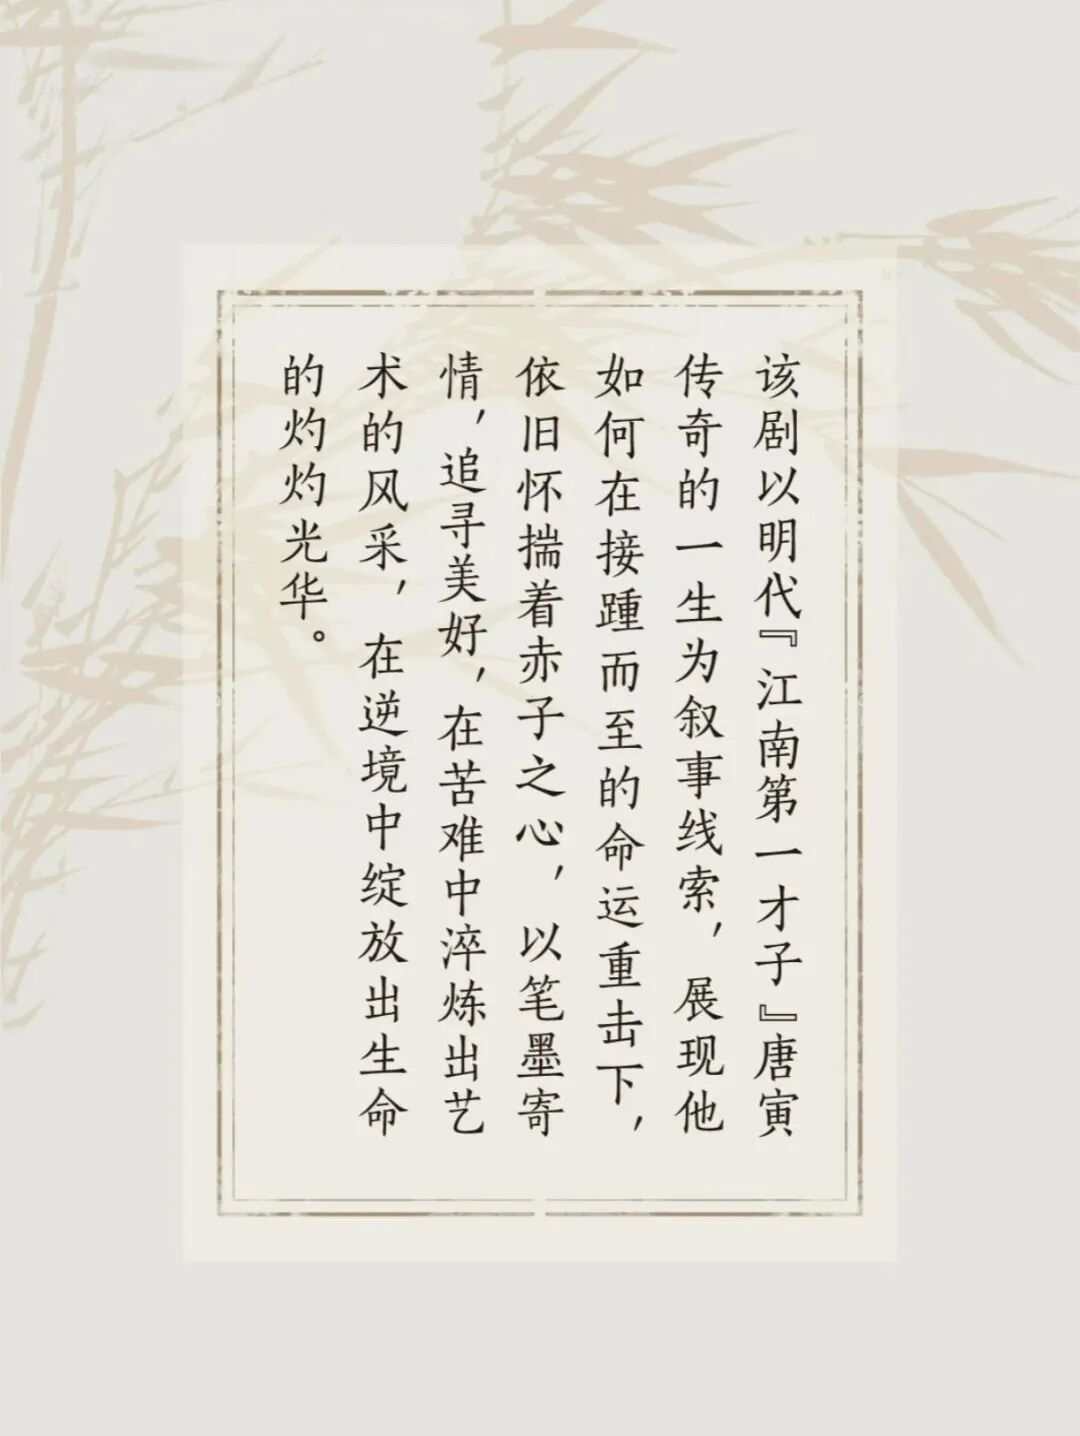 该剧以明代『江南第一才子』唐寅
传奇的一生为叙事线索，展现他
如何在接踵而至的命运重击下，
依旧怀揣着赤子之心，以笔墨寄
情，追寻美好，在苦难中淬炼出艺
术的风采，在逆境中绽放出生命
的灼灼光华。